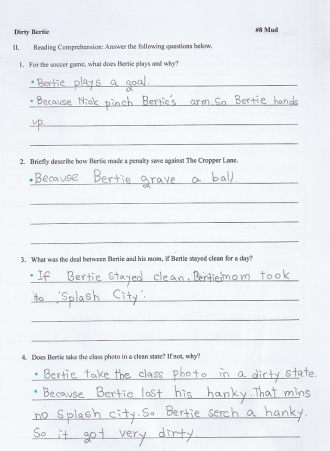 Dirty Bertie
#8 Mud
II. Reading Comprehension: Answer the following questions below.
1. For the soccer game, what does Bertie plays and why?
• Bertie plays a goal.
• Because Nick pinch Bertie's arm. So Bertie hands
up.
2. Briefly describe how Bertie made a penalty save against The Cropper Lane.
• Because Bertie grave a ball
3. What was the deal between Bertie and his mom, if Bertie stayed clean for a day?
• If Bertie stayed clean. mom took
to 'Splash City'.
4. Does Bertie take the class photo in a clean state? If not, why?
• Bertie take the class photo in a dirty state.
• Because Bertie lost his hanky. That mins
no Splash city. So Bertie serch a hanky.
So it got very dirty.